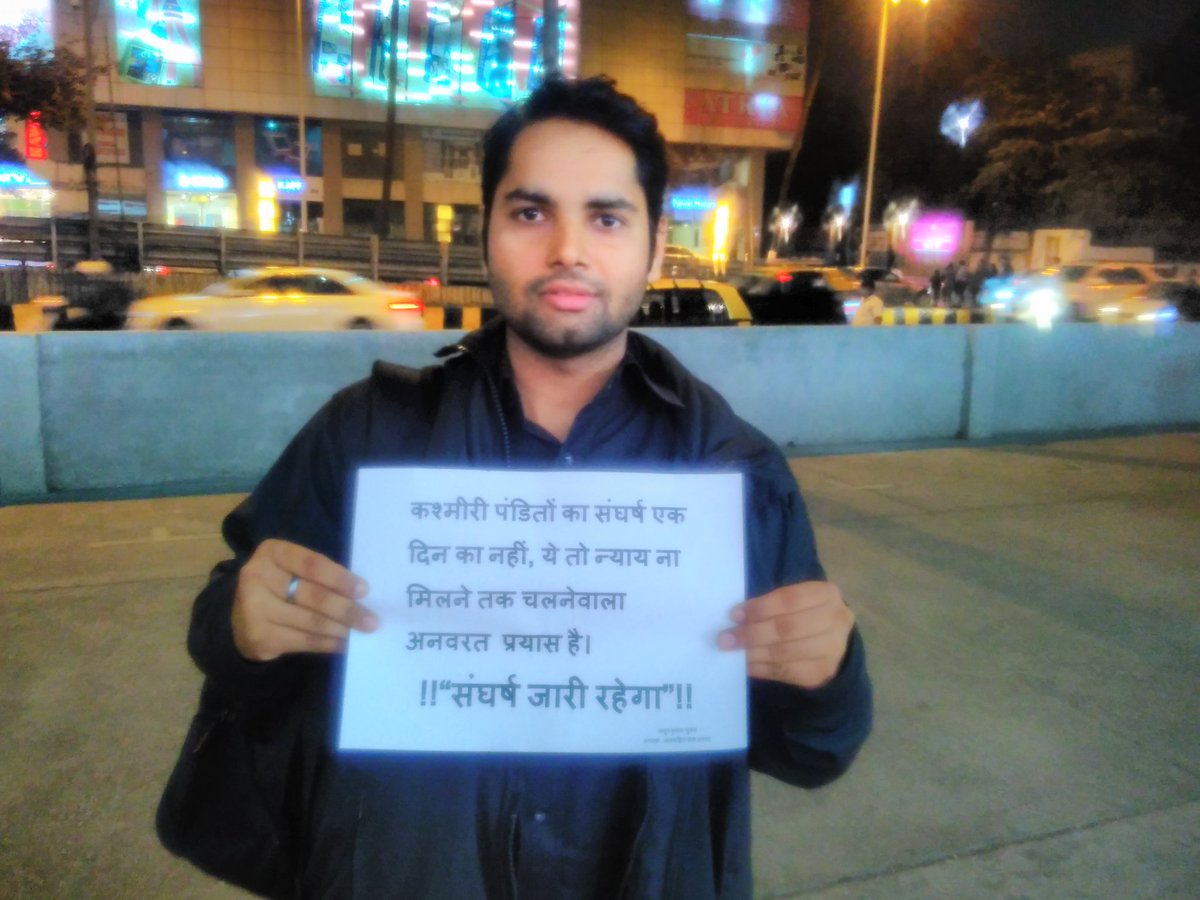 कश्मीरी पंडितों का संघर्ष एक
दिन का नहीं, ये तो न्याय ना
मिलने तक चलनेवाला
अनवरत प्रयास है।
!!“संघर्ष जारी रहेगा”!!